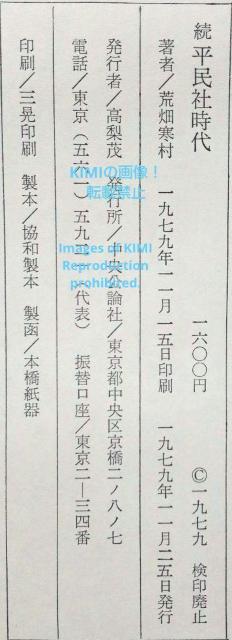 続 平民社時代 一六〇〇円 ©一九七九 検印廃止
著者／荒畑寒村 一九七九年一一月一五日印刷 一九七九年一一月二五日発行
発行者／高梨茂 発行所／中央公論社／東京都中央区京橋二ノ八ノ七
電話／東京（五六一）五九二一（代表） 振替口座／東京二―三四番
印刷／三晃印刷 製本／協和製本 製函／本橋紙器
KIMIの画像！
転載禁止
Images of KIMI
Reproduction
prohibited.